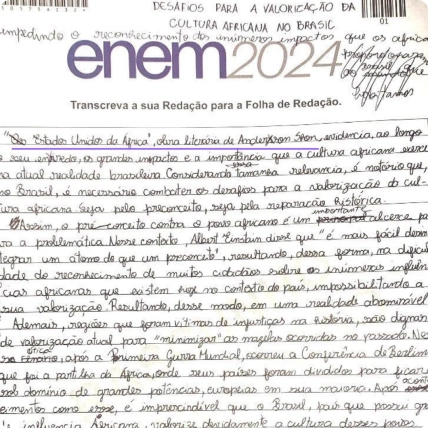 DESAFIOS PARA A VALORIZAÇÃO DA
CULTURA AFRICANA NO BRASIL
01
impedindo o reconhecimento dos inúmeros impactos que os africa
enem2024
Transcreva a sua Redação para a Folha de Redação.
Estados Unidos da África", obra literária de Anderson evidencia, ao longo
seu enredo, os grandes impactos e a importância que a cultura africana exerce
na atual realidade brasileira. Considerando tamanha relevância, é notório que,
no Brasil, é necessário combater os desafios para a valorização da cul-
tura africana seja pelo preconceito, seja pela reparação histórica.
Assim, o pré-conceito contra o povo africano é um importante alicerce pa
ra a problemática. Nesse contexto, Albert Einstein disse que "é mais fácil desin
tegrar um átomo do que um preconceito", resultando, dessa forma, na dificul
dade do reconhecimento de muitos cidadãos sobre as inúmeras influên
cias africanas que existem hoje no contexto do país, impossibilitando a
sua valorização. Resultando, desse modo, em uma realidade abominável
Ademais, regiões que foram vítimas de injustiças na história, são dignas
de valorização atual para "minimizar" as mazelas ocorridas no passado. Nes
sa ótica, após a Primeira Guerra Mundial, ocorreu a Conferência de Berlim
que foi a partilha da África, onde seus países foram divididos para ficar
sob domínio de grandes potências, europeias em sua maioria. Após aconte
cimentos como esse, é imprescindível que o Brasil, país que possui gran
influência Africana, valorize devidamente a cultura desses povos